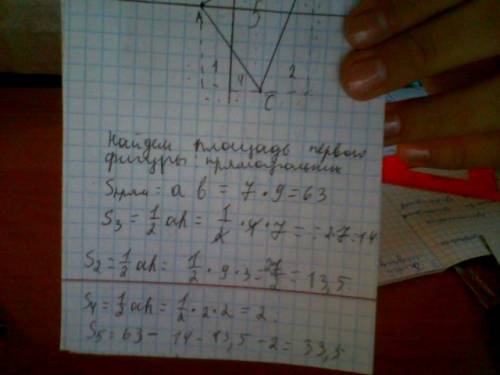 5
1
4
2
C
Найдем площадь первого
фигуры прямоугольник
Sпрям = a b = 7 · 9 = 63
S3 = 1/2 ah = 1/2 · 4 · 7 = = 2 7 = 14
S2 = 1/2 ah = 1/2 · 9 · 3 = 27/2 = 13,5
S4 = 1/2 ah = 1/2 · 2 · 2 = 2.
S5 = 63 - 14 - 13,5 - 2 = 33,5